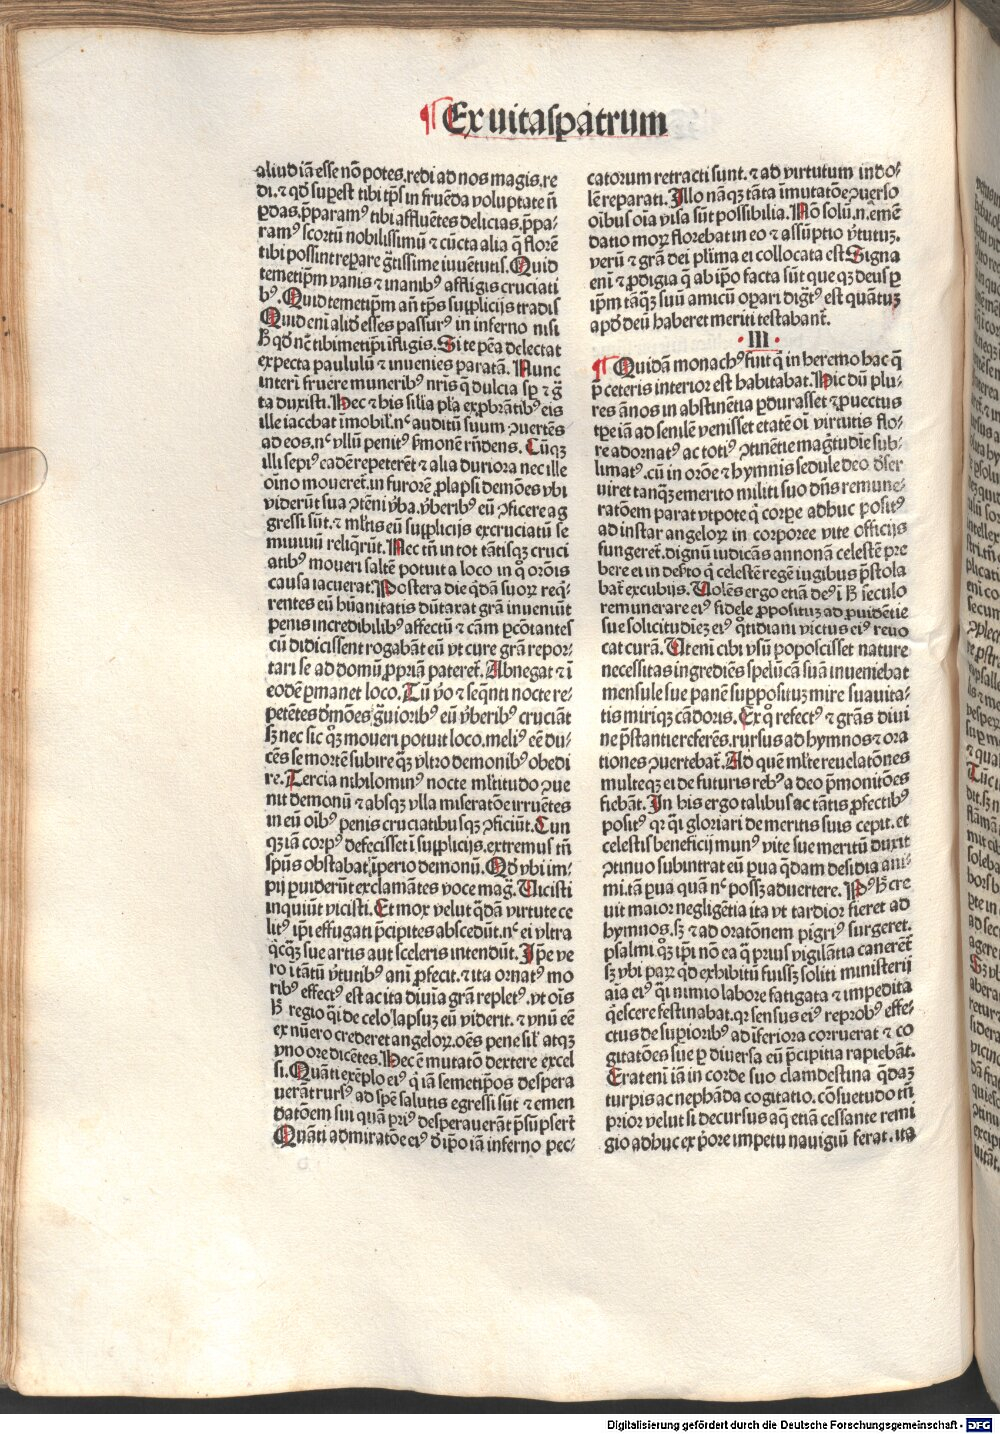 ¶ Ex vitaspatrum
aliud iã esse nõ potes. redi ad nos magis. re
di. ⁊ qď supest tibi tp̃s in fruẽda voluptate ñ
ꝑdas. p̃paramꝰ tibi affluẽtes delicias. p̃pa⸗
ramꝰ scortũ nobilissimũ ⁊ cũcta alia q̃ florẽ
tibi possint reparare g̃tissime iuuẽtutis. Quid
temetip̃m vanis ⁊ inanibꝰ affligis cruciati
bꝰ. Quid temetip̃m añ tp̃s supplicijs tradis
Quid eni aliď esses passurꝰ in inferno nisi
hͦ qď nc̃ tibimetip̃i ĩfligis. Si te pẽa delectat
expecta paululũ ⁊ inuenies paratã. Nunc
interĩ fruere muneribꝰ nr̃is q̃ dulcia sp̱ ⁊ g̃
ta duxisti. Hec ⁊ his silia pl̃a exꝓbrãtibꝰ eis
ille iacebat ĩmobil̃. nͨ auditũ suum ꝯuertẽs
ad eos. nͨ vllũ penitꝰ s̃monẽ rñdens. Cũqꝫ
illi sepiꝰ eadẽ repeterẽt ⁊ alia duriora nec ille
oĩno moueret̃. in furorẽ ꝓlapsi demões vbi
viderũt sua ꝯtẽni v̓ba. v̓beribꝰ eũ ꝯficere ag
gressi sũt. ⁊ ml̃tis eũ supplicijs excruciatũ se
miuiuũ reliq̃rũt. Nec tñ in tot tãtisqꝫ cruci
atibꝰ moueri saltẽ potuit a loco in q̊ orõis
causa iacuerat. Postera die q̃dã suoꝝ req̃⸗
rentes eũ hũanitatis dũtaxat grã inueniũt
penis incredibilibꝰ affectũ ⁊ cãm ꝑcõtantes
cũ didicissent rogabãt eũ vt cure grã repor⸗
tari se ad domũ ꝓpriã pateret̃. Abnegat ⁊ ĩ
eodẽ ꝑmanet loco. Tũ v̓o ⁊ seq̃nti nocte re⸗
petẽtes d̓mões g̃uioribꝰ eũ v̓beribꝰ cruciãt
sꝫ nec sic qͥꝫ moueri potuit loco. meliꝰ eẽ du⸗
cẽs se mortẽ subire qͥꝫ vltro demonibꝰ obedi
re. Tercia nihilominꝰ nocte ml̃titudo ꝯue
nit demonũ ⁊ absqꝫ vlla miseratõe irruẽtes
in eũ oĩbꝰ penis cruciatibusqꝫ ꝯficiũt. Cun
qꝫ iã corpꝰ defecisset ĩ supplicijs. extremus tñ
sp̃us obstabat ĩperio demonũ. Qď vbi im⸗
pij puiderũt exclamãtes voce mag̃. Vicisti
inquiũt vicisti. Et mox velut q̃dã virtute ce
litꝰ ip̃i effugati p̃cipites abscedũt. nͨ ei vltra
q̊cqͥꝫ sue artis aut sceleris intendũt. Ip̃e ve
ro ĩ tãtũ v̓tutibꝰ ani ꝓfecit. ⁊ ita ornatꝰ mo
ribꝰ effectꝰ est ac ita diuĩa grã repletꝰ. vt oĩs
hͦ regio q̃i de celo lapsuꝫ eũ viderit. ⁊ vnũ eẽ
ex nũero crederet angeloꝝ. oẽs pene sil̃ atqꝫ
vno ore dicẽtes. Hec ẽ mutatõ dextere excel
si. Quãti exẽplo eiꝰ q̊ iã semetip̃os despera
uerãt rursꝰ ad spẽ salutis egressi sũt ⁊ emen
datõem sui quã priꝰ desperauerãt p̃sũpsert̃
Quãti admiratõe eiꝰ d̓ ip̃o iã inferno pec⸗
catorum retracti sunt. ⁊ ad virtutum indo⸗
lẽ reparati. Illo nãqꝫ tãta ĩmutatõe ꝯuerso
oĩbus oĩa visa sũt possibilia. Nõ solũ. n. emẽ
datio moꝝ florebat in eo ⁊ assũptio v̓tutuꝫ.
verũ ⁊ grã dei pl̃ima ei collocata est. Signa
eni ⁊ ꝓdigia q̃ ab ip̃o facta sũt que qꝫ deus ꝑ
ip̃m tãqͥꝫ suũ amicũ opari dig̃tꝰ est quãtuꝫ
apď deũ haberet meriti testabant̃.
·III·
¶ Quidã monachꝰ fuit q̊ in heremo hac q̃
p̃ ceteris interior est habitabat. Hic dũ plu⸗
res ãnos in abstinẽtia ꝑdurasset ⁊ ꝓuectus
tp̃e iã ad senilẽ venisset etatẽ oĩ virtutis flo⸗
re adornatꝰ ac totiꝰ ꝯtinẽtie mag̃tudĩe sub⸗
limatꝰ. cũ in orõe ⁊ hymnis sedule deo d̓ser
uiret tanqͥꝫ emerito militi suo dñs remune⸗
ratõem parat vtpote q̊ corpe adhuc positꝰ
ad instar angeloꝝ in corporee vite officijs
fungeret̃. dignũ iudicãs annonã celestẽ pre
bere ei in des̃to q̊ celestẽ regẽ iugibus p̃stola
bat̃ excubijs. Volẽs ergo etiã deꝰ ĩ hͦ seculo
remunerare eiꝰ fidele ꝓposituꝫ ad ꝓuidẽtie
sue solicitudieꝫ eiꝰ q̊tidiani victus eiꝰ reuo
cat curã. Vt eni cibi vsũ poposcisset nature
necessitas ingrediẽs spelũcã suã inueniebat
mensule sue panẽ supposituꝫ mire suauita⸗
tis miriqꝫ cãdoris. Ex q̊ refectꝰ ⁊ grãs diui
ne p̃stantie referẽs. rursus ad hymnos ⁊ ora
tiones ꝯuertebat̃. Ad quẽ ml̃te reuelatões
multeqꝫ ei de futuris rebꝰ a deo p̃monitões
fiebãt. In his ergo talibus ac tãtis ꝓfectibꝰ
positꝰ qr̃ q̃i gloriari de meritis suis cepit. et
celestis beneficij munꝰ vite sue meritũ duxit
ꝯtinuo subintrat eũ pua q̃dam desidia ani⸗
mi. tã pua quã nͨ possꝫ aduertere. Pꝰ hͨ cre
uit maior negligẽtia ita vt tardior fieret ad
hymnos. sꝫ ⁊ ad oratõnem pigriꝰ surgeret.
psalmi qͦꝫ ip̃i nõ ea q̃ prius vigilãtia canerẽt̃
sꝫ vbi paꝝ qď exhibitũ fuissꝫ soliti ministerij
aĩa eiꝰ q̃i nimio labore fatigata ⁊ impedita
q̊escere festinabat. qr̃ sensus eiꝰ reprobꝰ effe⸗
ctus de supioribꝰ ad ĩferiora corruerat ⁊ co
gitatões sue ꝑ diuersa eũ p̃cipitia rapiebãt.
Erat eni iã in corde suo clamdestina q̃daꝫ
turpis ac nephãda cogitatio. cõsuetudo tñ
prior velut si decursus aq̃ etiã cessante remi
gio adhuc ex p̓ore impetu nauigiũ ferat. ita
Digitalisierung gefördert durch die Deutsche Forschungsgemeinschaft - DFG